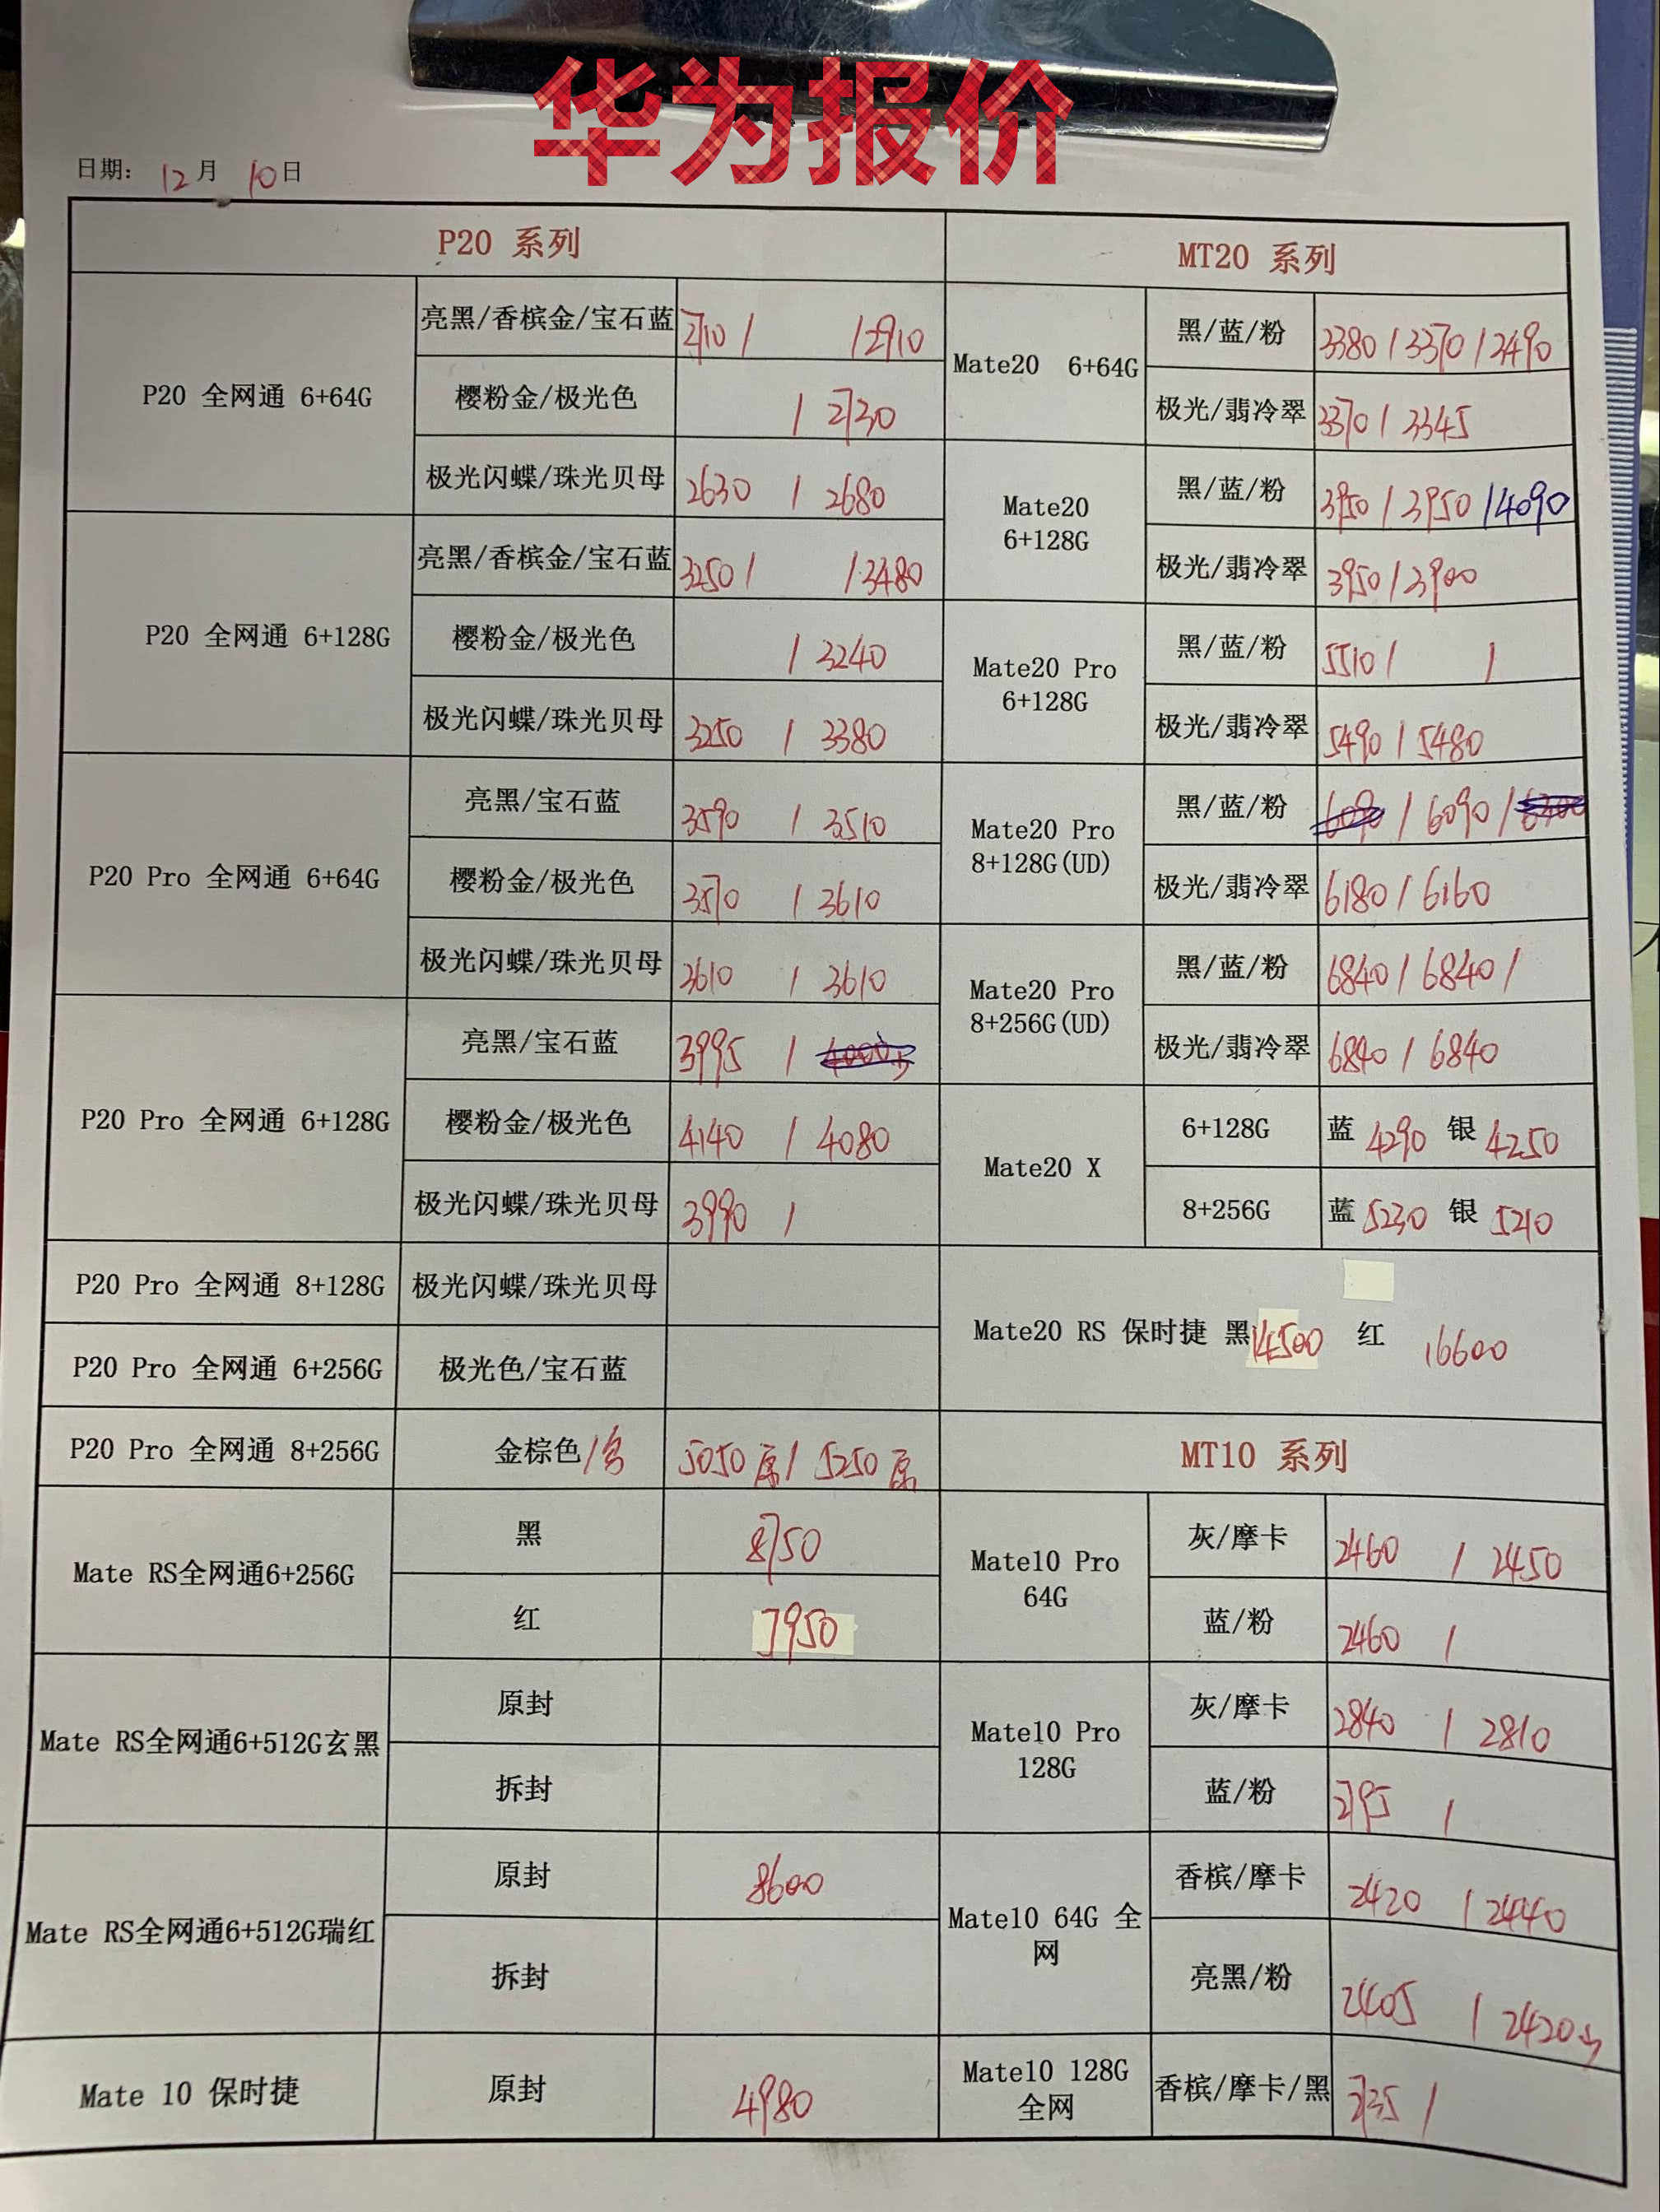 华为报价
日期: 12月 10日
P20 系列
P20 全网通 6+64G
亮黑/香槟金/宝石蓝 2710 / /2910
樱粉金/极光色 / 2730
极光闪蝶/珠光贝母 2630 / 2680
P20 全网通 6+128G
亮黑/香槟金/宝石蓝 3250 / /3480
樱粉金/极光色 / 3240
极光闪蝶/珠光贝母 3250 / 3380
P20 Pro 全网通 6+64G
亮黑/宝石蓝 3590 / 3510
樱粉金/极光色 3570 / 3610
极光闪蝶/珠光贝母 3610 / 3610
P20 Pro 全网通 6+128G
亮黑/宝石蓝 3995 /
樱粉金/极光色 4140 / 4080
极光闪蝶/珠光贝母 3990 /
P20 Pro 全网通 8+128G 极光闪蝶/珠光贝母
P20 Pro 全网通 6+256G 极光色/宝石蓝
P20 Pro 全网通 8+256G 金棕色/ 5050原/ 5250原
Mate RS全网通6+256G
黑 8750
红 7950
Mate RS全网通6+512G玄黑
原封
拆封
Mate RS全网通6+512G瑞红
原封 8600
拆封
Mate 10 保时捷 原封 4980
MT20 系列
Mate20 6+64G
黑/蓝/粉 3380 / 3370 / 3490
极光/翡冷翠 3370 / 3345
Mate20
6+128G
黑/蓝/粉 3950 / 3950 /4090
极光/翡冷翠 3950 / 3900
Mate20 Pro
6+128G
黑/蓝/粉 5510 / /
极光/翡冷翠 5490 / 5480
Mate20 Pro
8+128G(UD)
黑/蓝/粉 6090 / 6090 /
极光/翡冷翠 6180 / 6160
Mate20 Pro
8+256G(UD)
黑/蓝/粉 6840 / 6840 /
极光/翡冷翠 6840 / 6840
Mate20 X
6+128G 蓝 4290 银 4250
8+256G 蓝 5230 银 5210
Mate20 RS 保时捷 黑 14500 红 16600
MT10 系列
Mate10 Pro
64G
灰/摩卡 2460 / 2450
蓝/粉 2460 /
Mate10 Pro
128G
灰/摩卡 2840 / 2810
蓝/粉 2795 /
Mate10 64G 全
网
香槟/摩卡 2420 / 2440
亮黑/粉 2405 / 2420
Mate10 128G
全网
香槟/摩卡/黑 2735 /